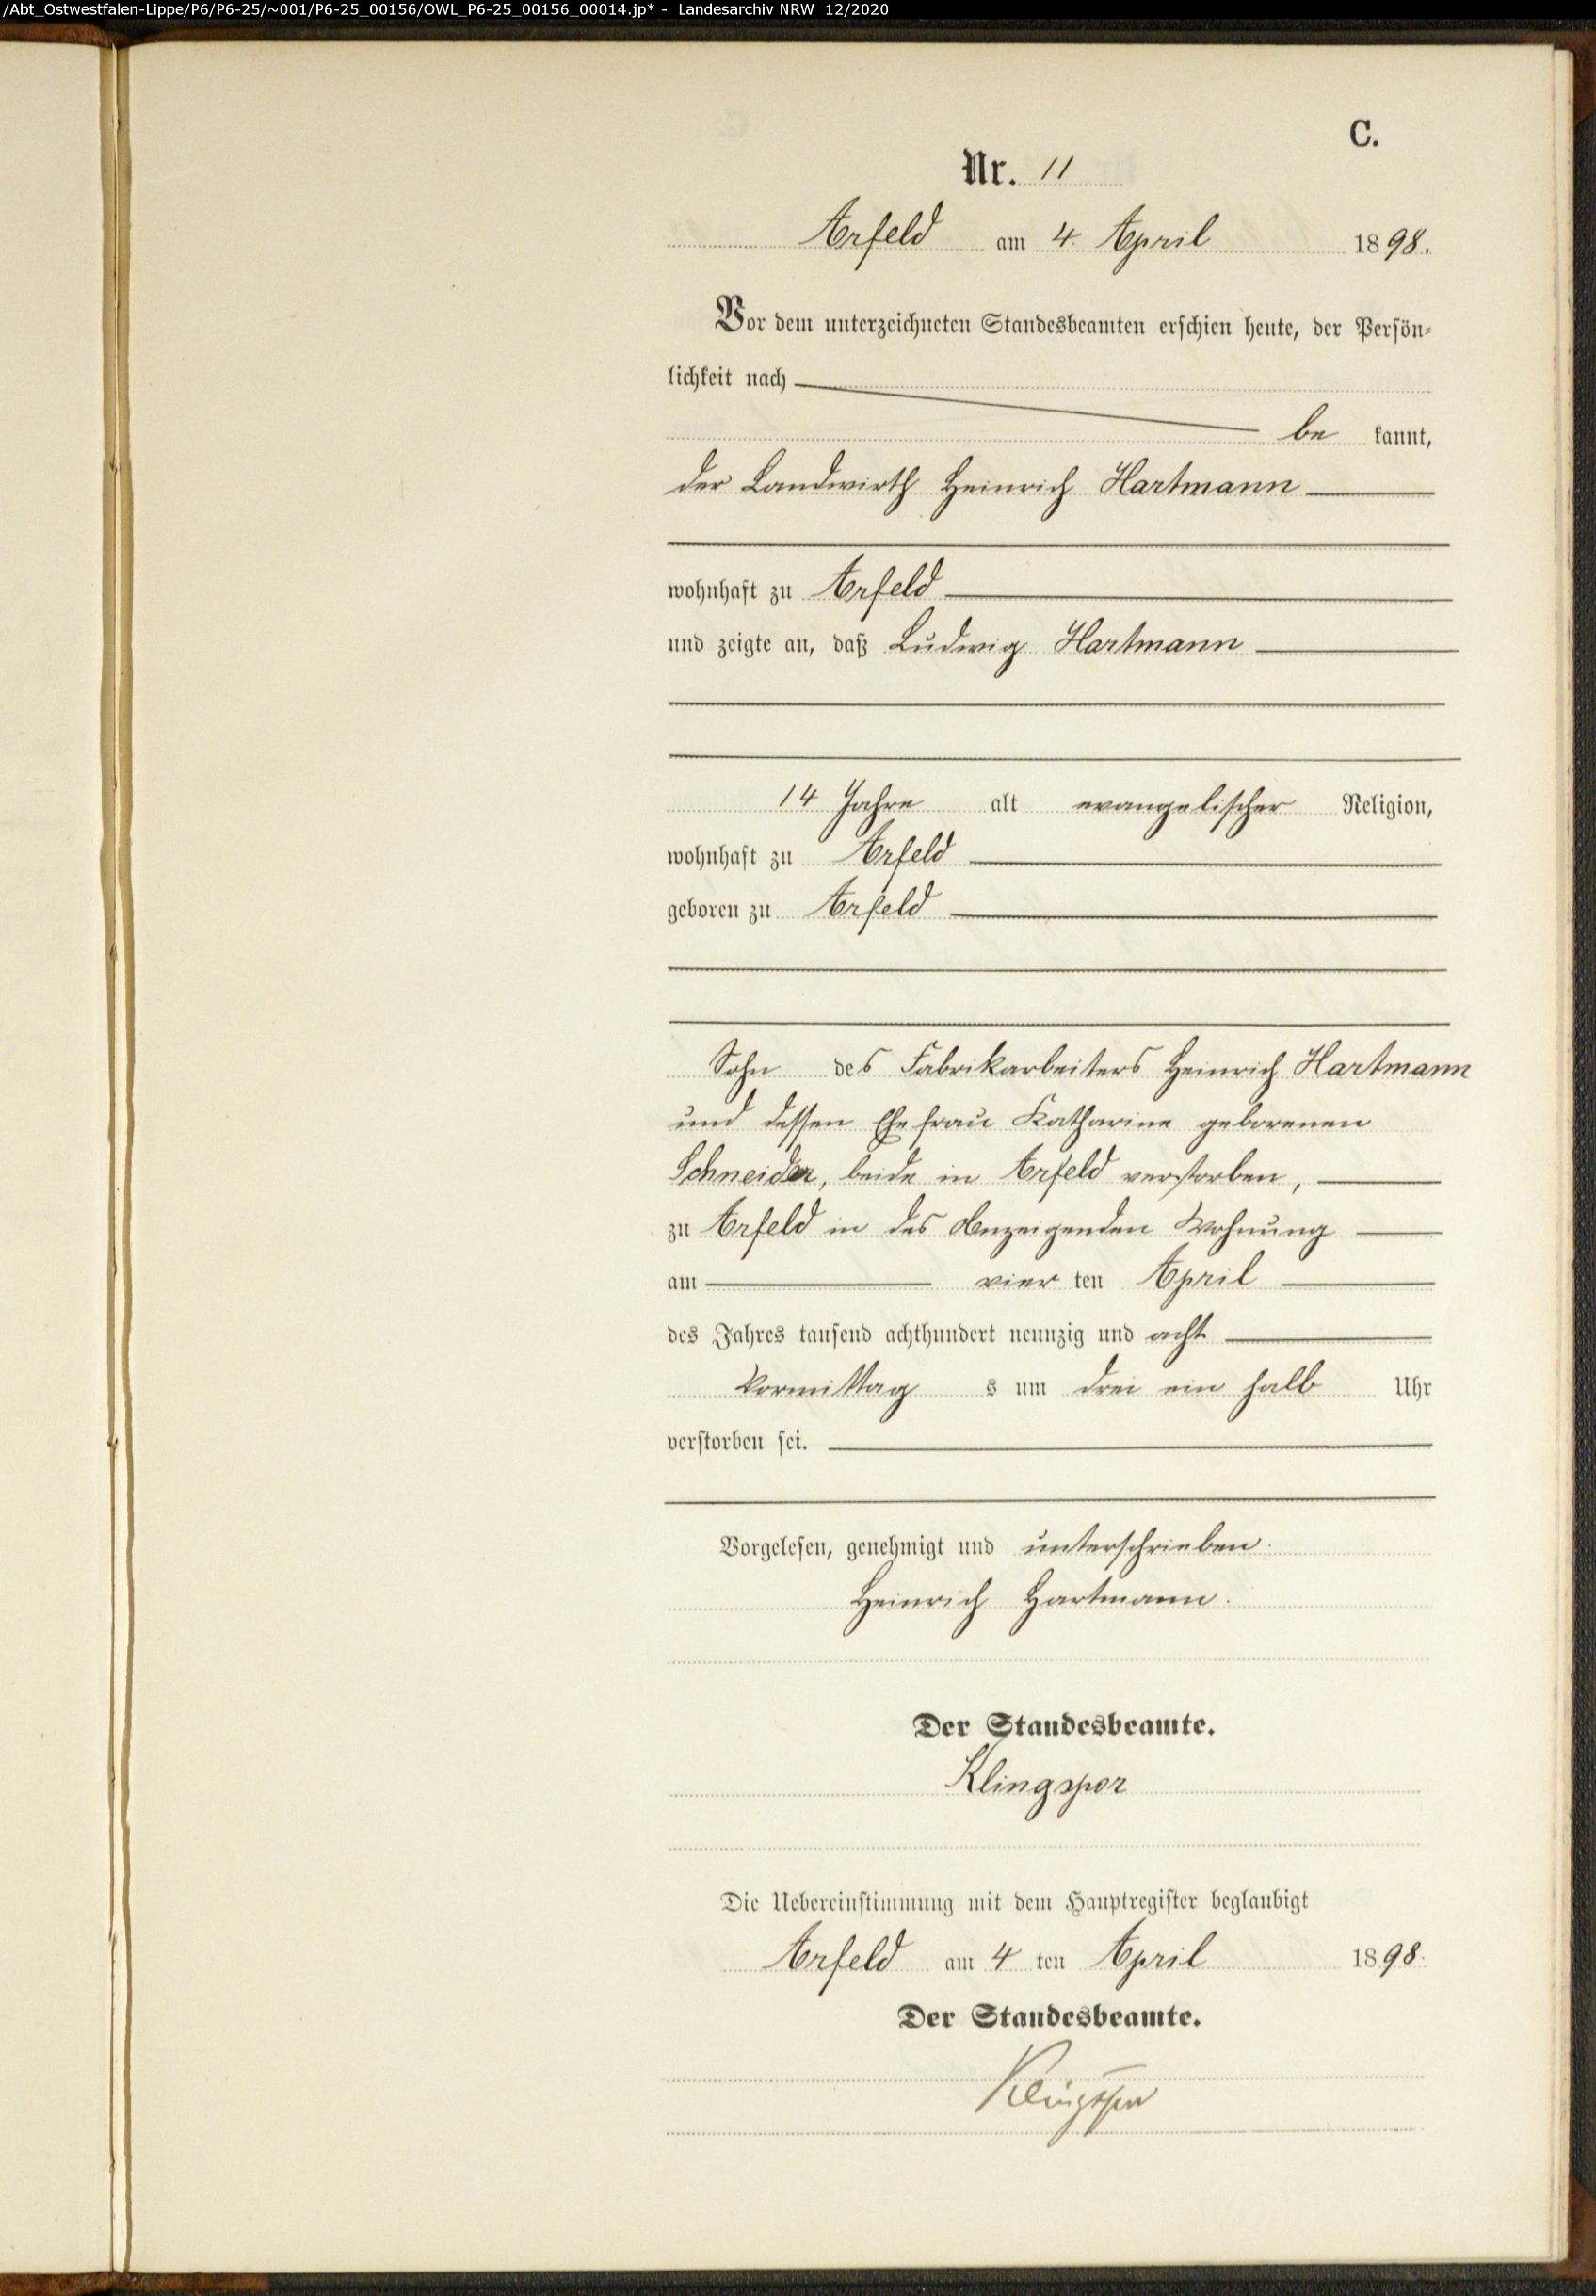 /Abt_Ostwestfalen-Lippe/P6/P6-25/~001/P6-25_00156/OWL_P6-25_00156_00014.jp* - Landesarchiv NRW 12/2020
C.
Nr. 11
Arfeld am 4. April 1898.
Vor dem unterzeichneten Standesbeamten erschien heute, der Persön-
lichkeit nach
be kannt,
der Landwirth Heinrich Hartmann
wohnhaft zu Arfeld
und zeigte an, daß Ludwig Hartmann
14 Jahre alt evangelischer Religion,
wohnhaft zu Arfeld
geboren zu Arfeld
Sohn des Fabrikarbeiters Heinrich Hartmann
und dessen Ehefrau Katharine geborenen
Schneider, beide in Arfeld verstorben,
zu Arfeld in des Anzeigenden Wohnung
am vier ten April
des Jahres tausend achthundert neunzig und acht
Vormittag s um drei ein halb Uhr
verstorben sei.
Vorgelesen, genehmigt und unterschrieben.
Heinrich Hartmann.
Der Standesbeamte.
Klingspor
Die Uebereinstimmung mit dem Hauptregister beglaubigt
Arfeld am 4 ten April 1898.
Der Standesbeamte.
Klingspor